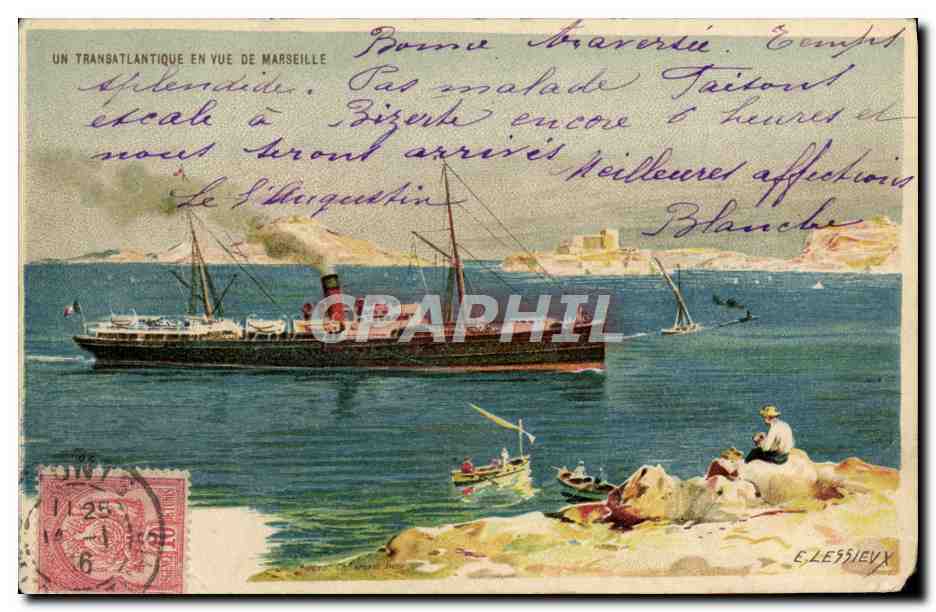 UN TRANSATLANTIQUE EN VUE DE MARSEILLE
Bonne traversée. Temps
splendide. Pas malade Faisons
escale à Bizerte encore 6 heures et
nous serons arrivés
Meilleures affections
Le St Augustin
Blanche
CPAPHIL
11 25
10
E. LESSIEUX